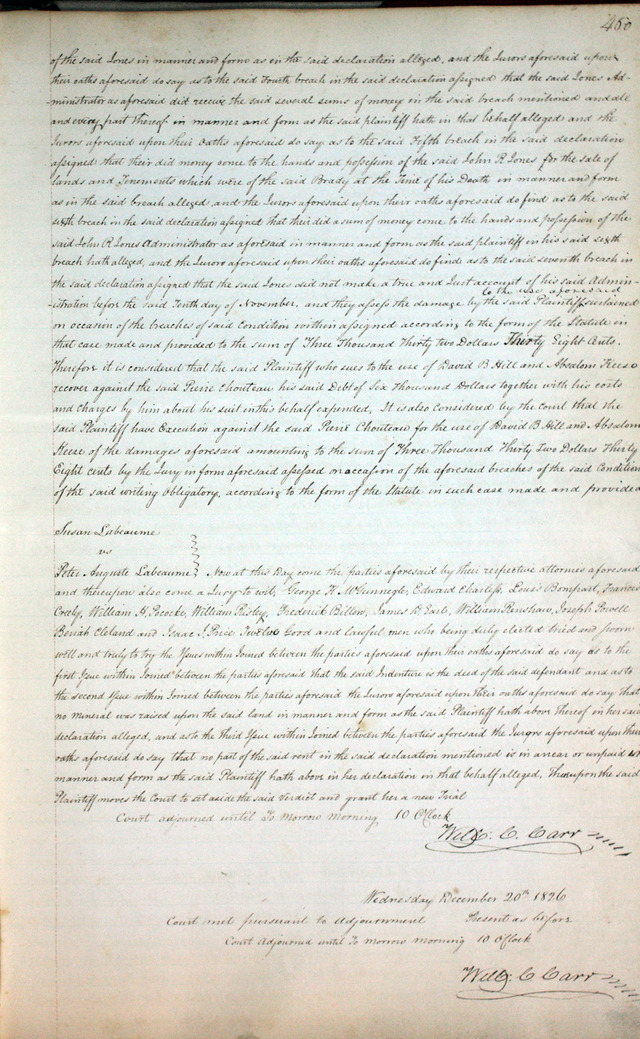 460
of the said Jones in manner and form as in the said declaration alleged, and the Jurors aforesaid upon
their oaths aforesaid do say as to the said Fourth breach in the said declaration assigned that the said Jones Ad-
-ministrator as aforesaid did receive the said several sums of money in the said breach mentioned and all
and every part thereof in manner and form as the said plaintiff hath in that behalf alleged and the
Jurors aforesaid upon their Oaths aforesaid do say as to the said Fifth breach in the said declaration
assigned that their did money come to the hands and possession of the said John R Jones for the sale of
lands and Tenements which were of the said Brady at the Time of his Death in manner and form
as in the said breach alleged and the Jurors aforesaid upon their oaths aforesaid do find as to the said
sixth breach in the said declaration assigned that their did a sum of money come to the hands and possession of the
said John R Jones Administrator as aforesaid in manner and form as the said plaintiff in his said sixth
breach hath alleged, and the Jurors aforesaid upon their oaths aforesaid do find as to the said seventh breach in
the said declaration assigned that the said Jones did not make a true and Just account of his said Admin-
to the use aforesaid
-istration before the said Tenth day of November, and they assess the damage by the said Plaintiff sustained
on occasion of the breaches of said Condition within assigned according to the form of the Statute in
that case made and provided to the sum of Three Thousand Thirty two Dollars Thirty Eight Cents.
Therefore it is considered that the said Plaintiff who sues to the use of David B Hill and Absalom Keese
recover against the said Pierre Chouteau his said Debt of Six Thousand Dollars together with his costs
and charges by him about his suit in this behalf expended, It is also considered by the Court that the
said Plaintiff have Execution against the said Pierre Chouteau for the use of David B Hill and Absalom
Keese of the damages aforesaid amounting to the sum of Three Thousand Thirty Two Dollars Thirty
Eight cents by the Jury in form aforesaid assessed on accasion of the aforesaid breaches of the said Condition
of the said writing Obligatory, according to the form of the Statute in such case made and provided
Susan Labeaume
vs
Peter Auguste Labeaume Now at this Day come the parties aforesaid by their respective attornies aforesaid
and thereupon also come a Jury to wit, George H. McGunnegle, Edward Charless, Louis Bompart, Frances
Creely, William H. Pococke, William Risley, Frederick Billow, James R. Earl, William Renshaw, Joseph Powell
Beriah Cleland and Isaac J. Price Twelve Good and lawful men who being duly elected tried and sworn
well and truly to try the Issues within Joined between the parties aforesaid upon their oaths aforesaid do say as to the
first Issue within Joined between the parties aforesaid that the said Indenture is the deed of the said defendant and as to
the second Issue within Joined between the parties aforesaid the Jurors aforesaid upon their oaths aforesaid do say that
no mineral was raised upon the said land in manner and form as the said Plaintiff hath above thereof in her said
declaration alleged, and as to the third Issue within Joined between the parties aforesaid the Jurors aforesaid upon their
oaths aforesaid do say that no part of the said rent in the said declaration mentioned is in arrear or unpaid in
manner and form as the said Plaintiff hath above in her declaration in that behalf alleged. Thereupon the said
Plaintiff moves the Court to set aside the said Verdict and grant her a new Trial
Court adjourned until To Morrow Morning 10 OClock
Will: C. Carr
Wednesday December 20th 1826
Court met pursuant to Adjournment Present as before
Court Adjourned until To morrow morning 10 OClock
Will: C Carr